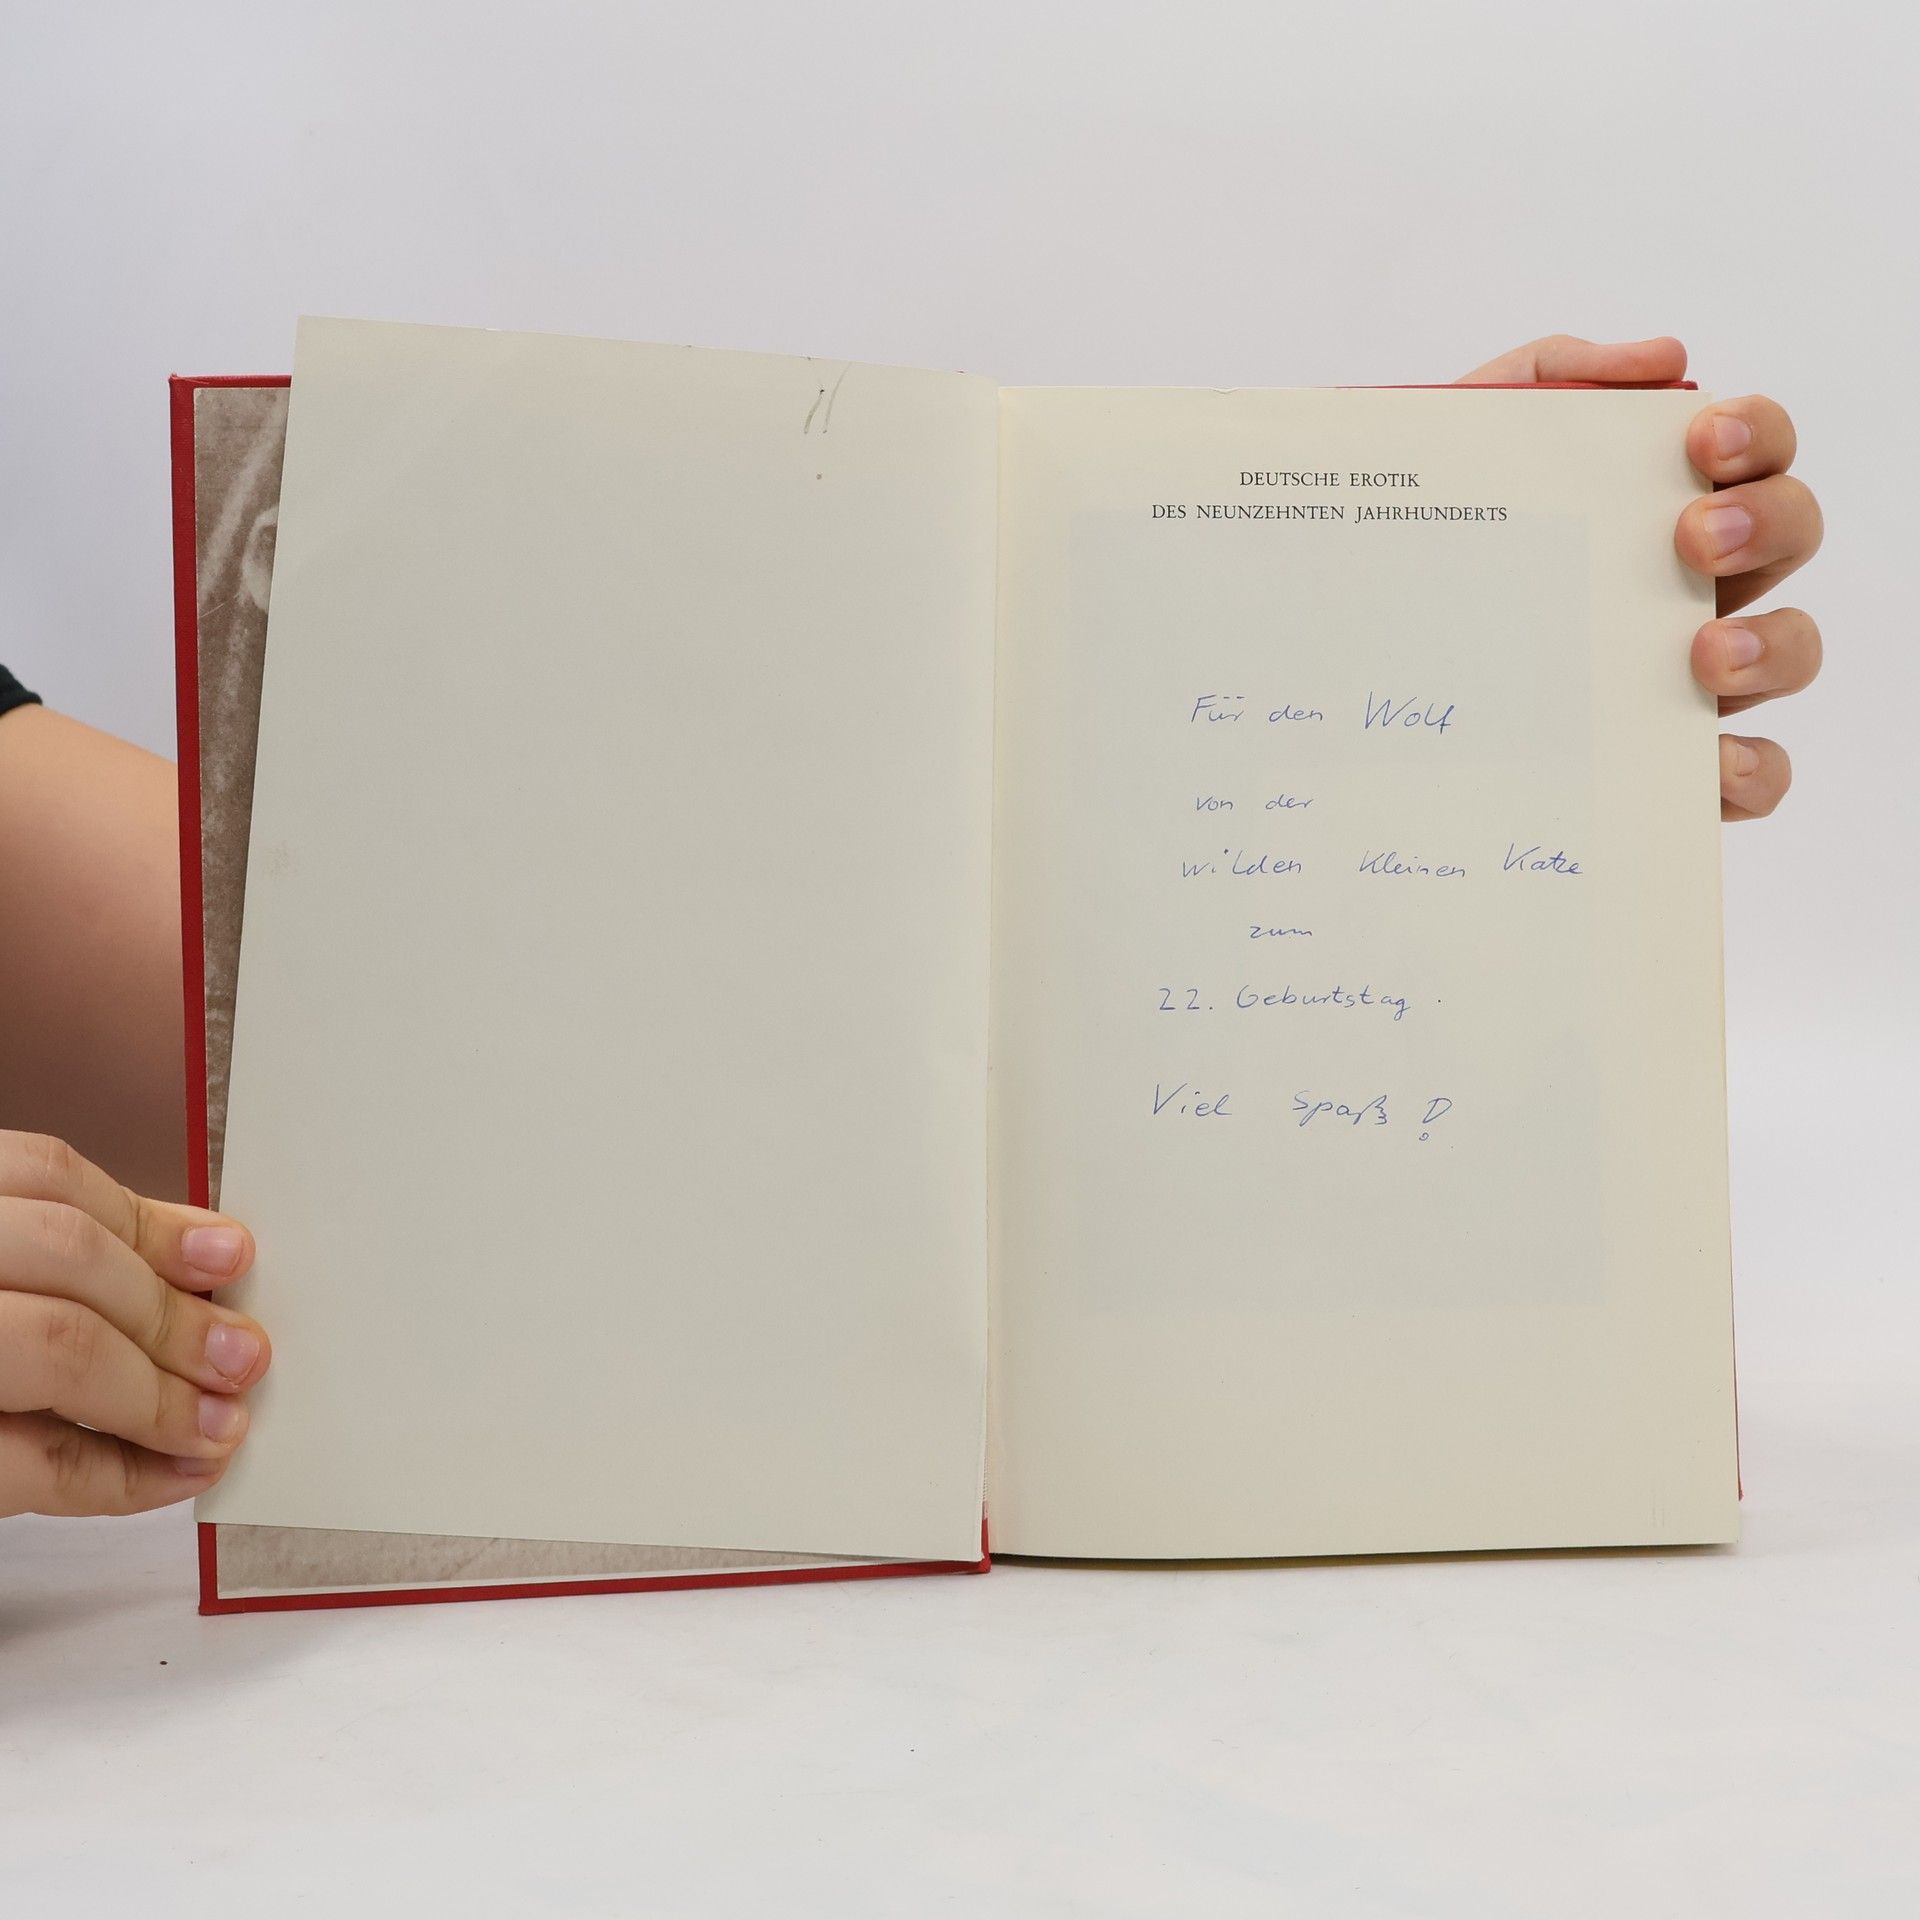 DEUTSCHE EROTIK
DES NEUNZEHNTEN JAHRHUNDERTS
Für den Wolf
von der
wilden kleinen Katze
zum
22. Geburtstag.
Viel Spaß!